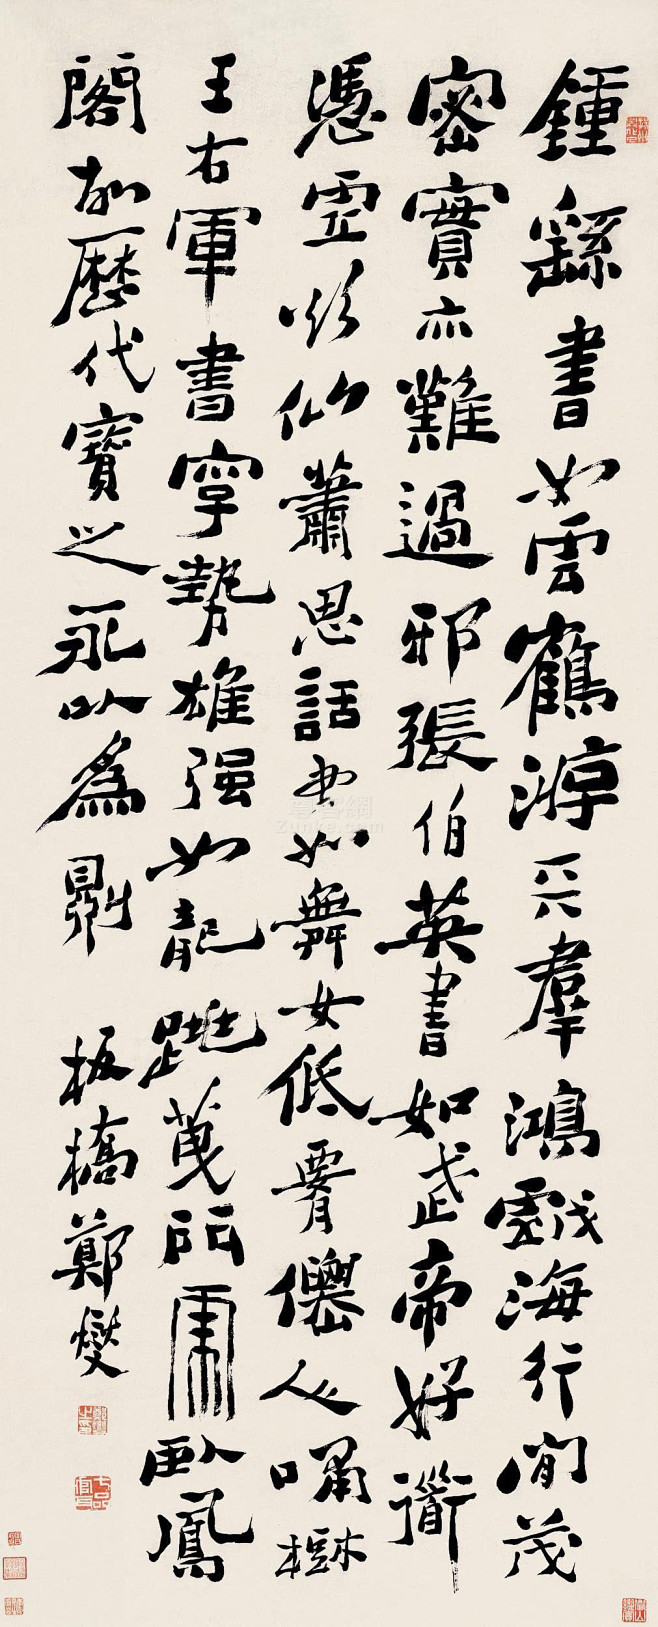 鍾繇書如雲鶴游天羣鴻戲海行間茂
密實亦難過邪張伯英書如武帝好衟
憑虛欲仙蕭思話書如舞女低腰僊人嘯樹
王右軍書字勢雄强如龍跳天門虎臥鳳
閣故歷代寶之永以為訓
板橋鄭燮
鄭燮之印
七品官耳
尊客網
Zunke.com